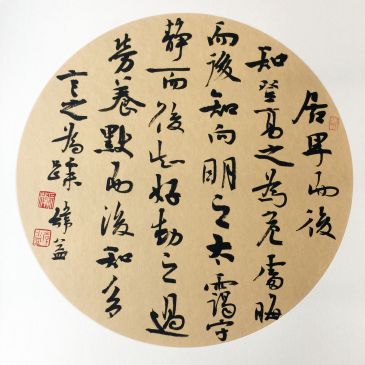 居卑而後
知登高之為危處晦
而後知向明之太露守
靜而後知好動之過
勞養默而後知多
言之為躁